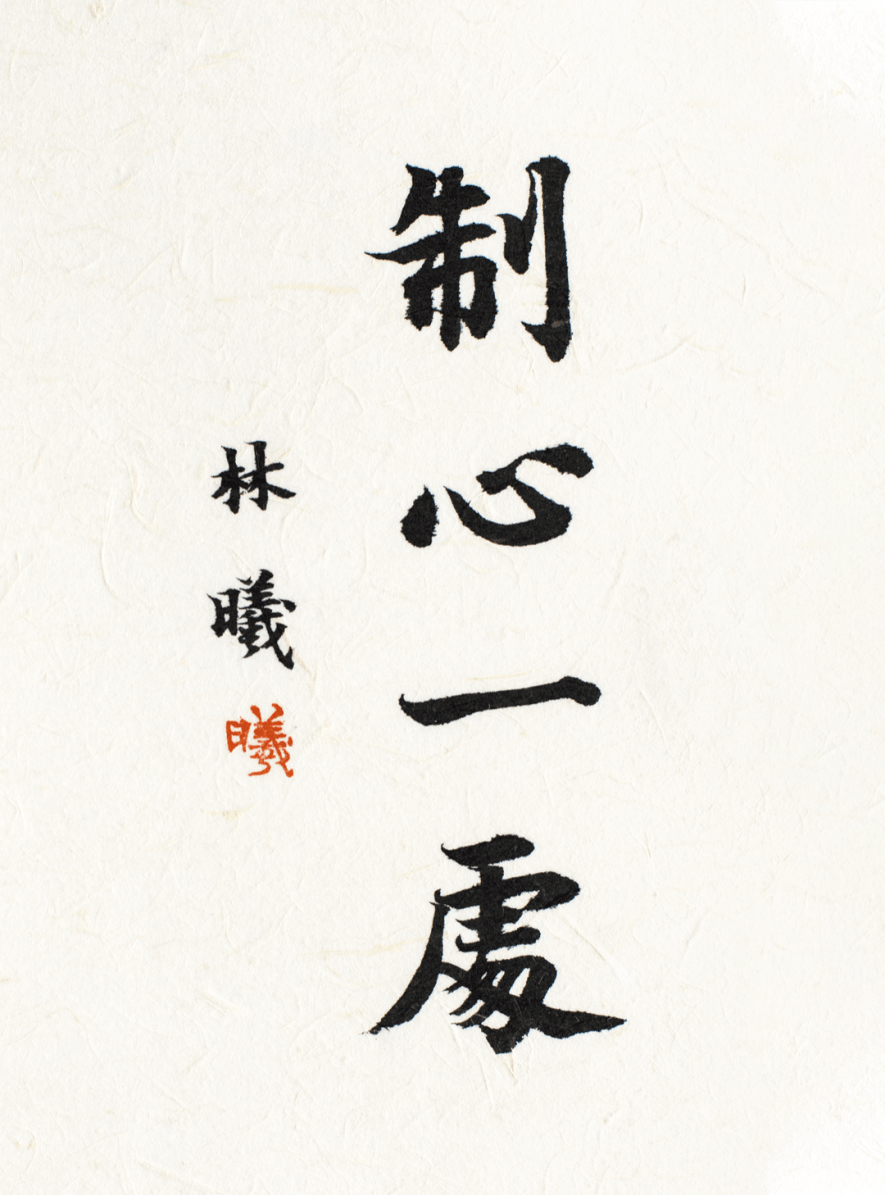 制心一處
林曦
曦